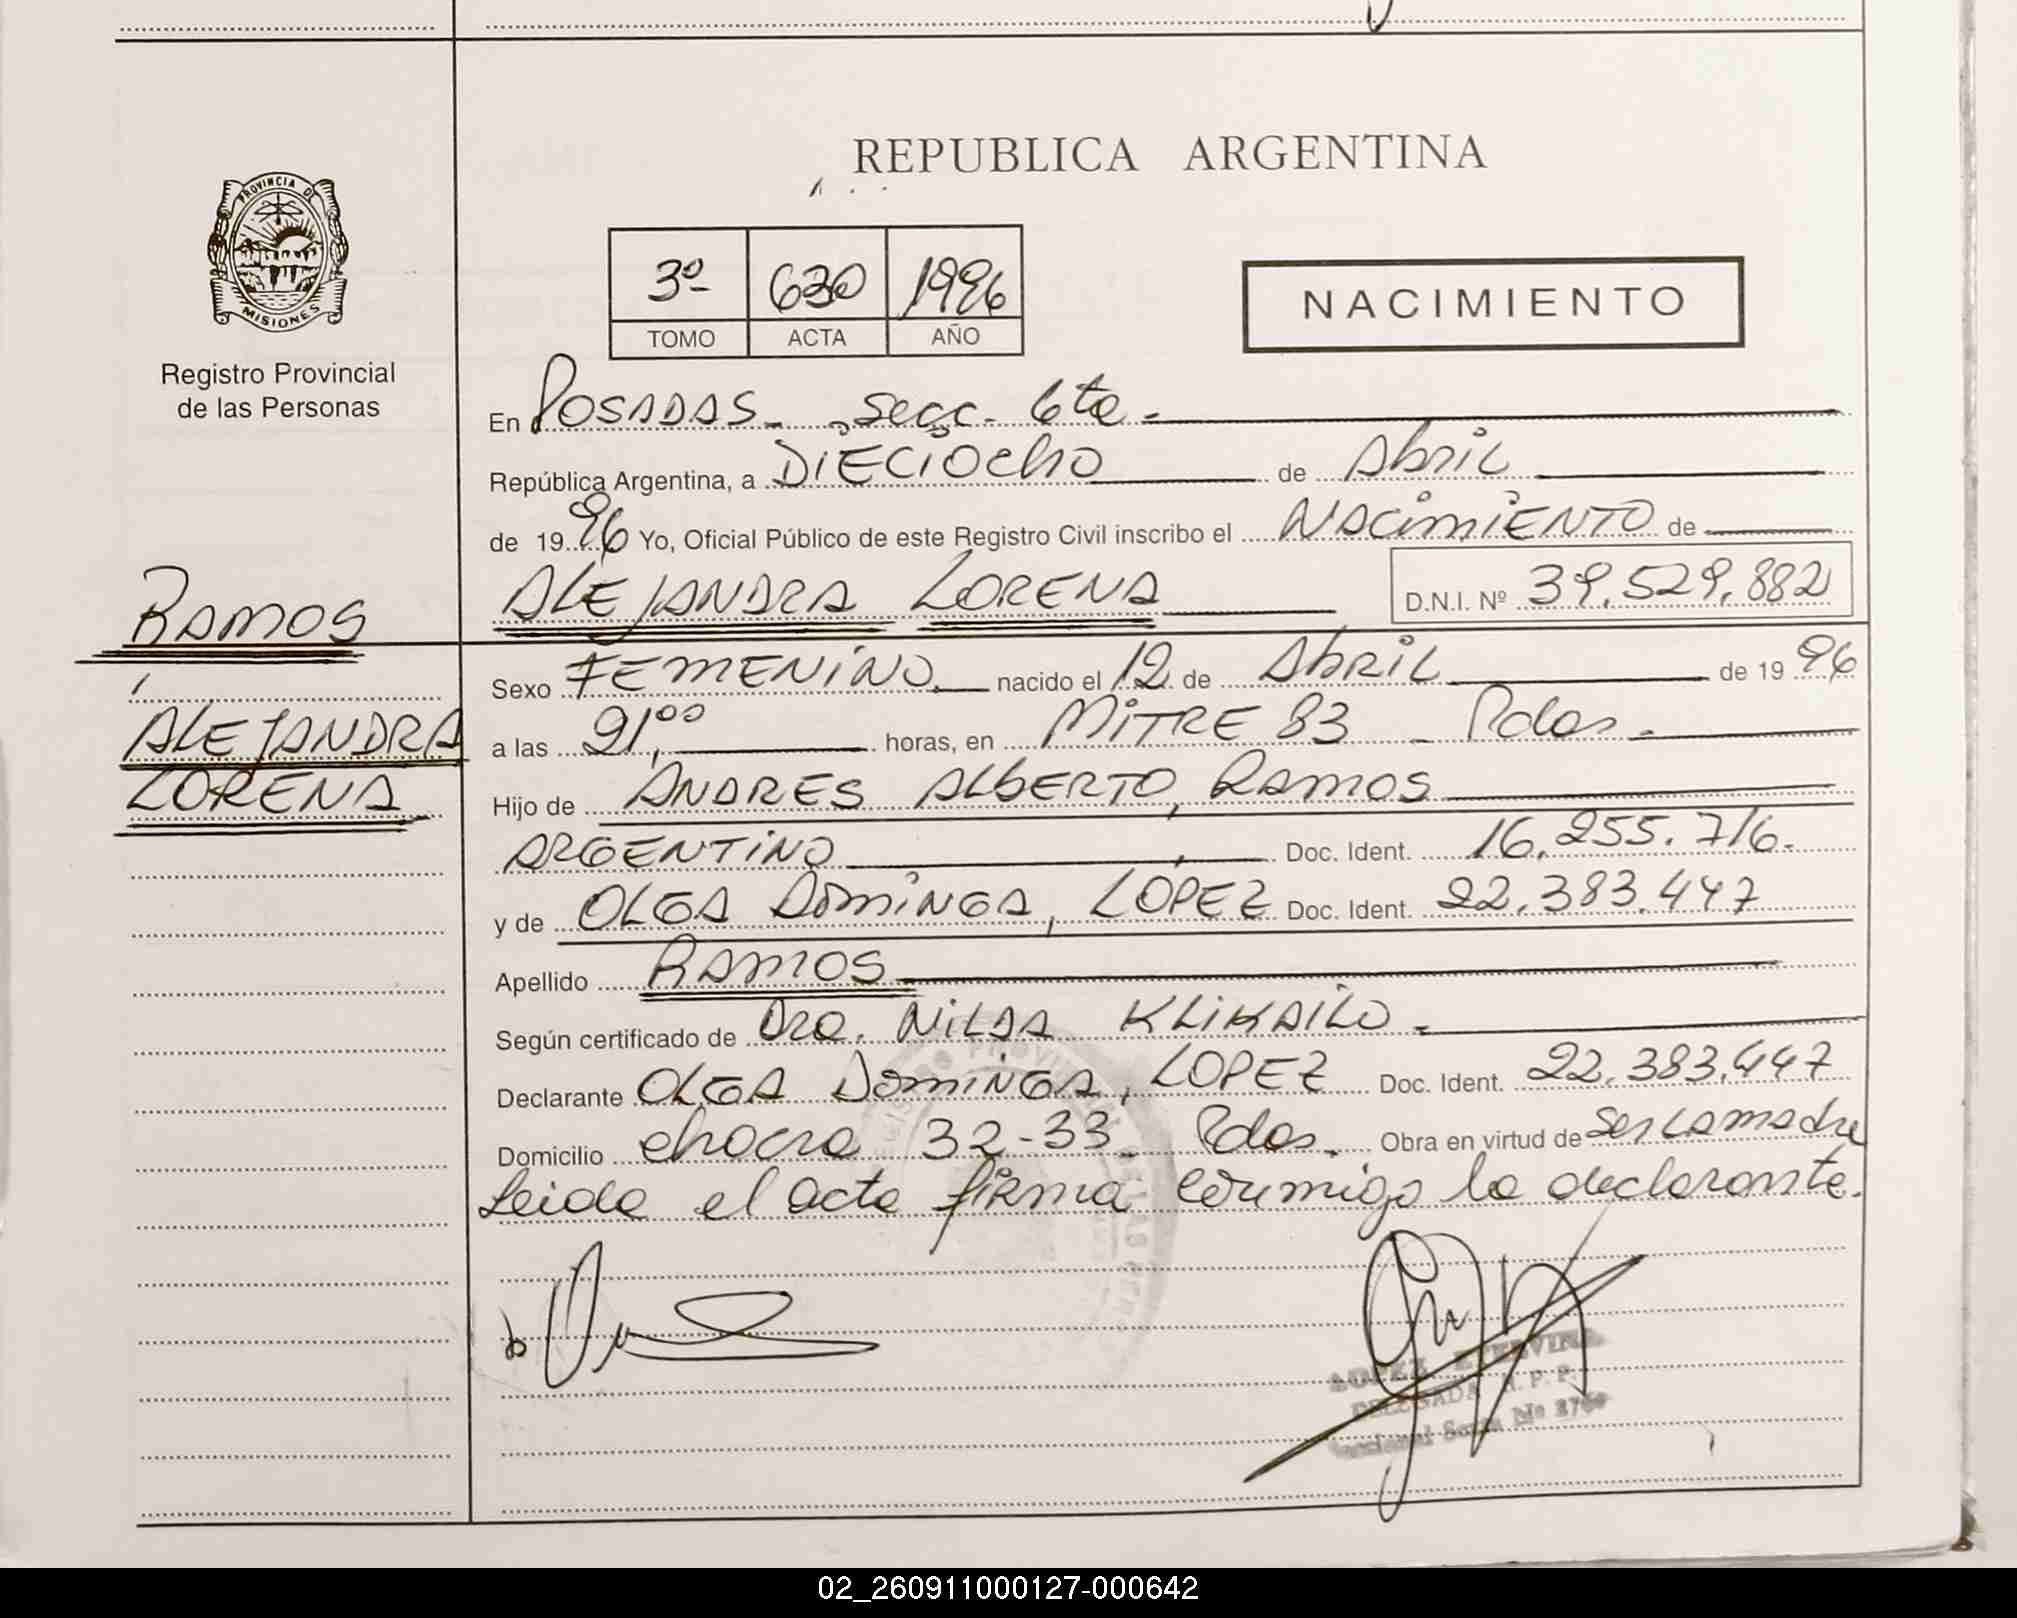 REPUBLICA ARGENTINA
PROVINCIA DE
MISIONES
Registro Provincial
de las Personas
3º 630 1996
TOMO ACTA AÑO
NACIMIENTO
En Posadas - Secc. 6ta -
República Argentina, a Dieciocho de Abril
de 1996 Yo, Oficial Público de este Registro Civil inscribo el Nacimiento de
RAMOS
ALEJANDRA LORENA D.N.I. Nº 39.529.882
Sexo FEMENINO nacido el 12 de Abril de 1996
ALEJANDRA
LORENA
a las 21,00 horas, en MITRE 83 - Pdas.
Hijo de ANDRES ALBERTO, RAMOS
ARGENTINO, Doc. Ident. 16.255.716.
y de OLGA DOMINGA, LOPEZ Doc. Ident. 22.383.447
Apellido RAMOS
Según certificado de Dra. NILDA KLIKAILO.
Declarante OLGA DOMINGA, LOPEZ Doc. Ident. 22.383.447
Domicilio chacra 32-33 - Pdas. Obra en virtud de ser la madre
Leida el acta firma conmigo la declarante.
DELEGADA R. P. P.
02_260911000127-000642